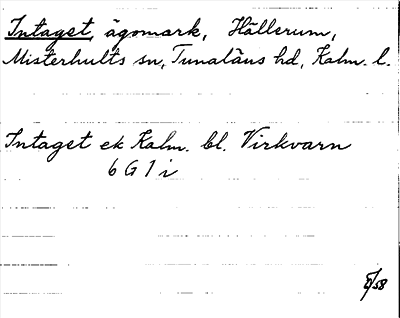 Intaget, ägomark, Hällerum,
Misterhults sn, Tunaläns hd, Kalm. l.
Intaget ek Kalm. bl. Virkvarn
6 G 1 i